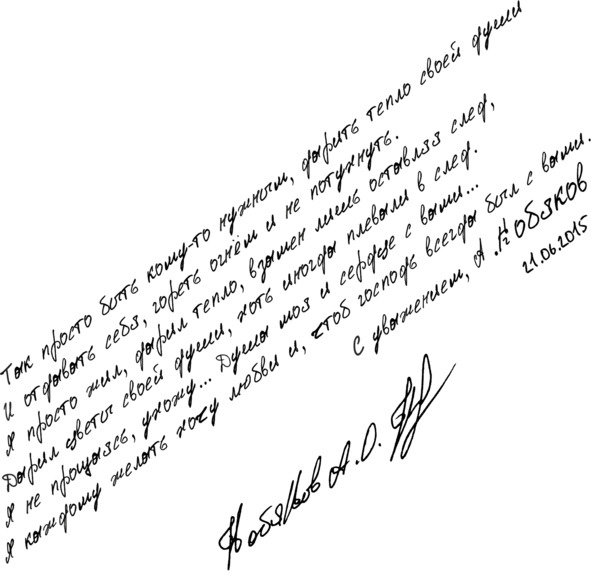 Так просто быть кому-то нужным, дарить тепло своей души
И отдавать себя, гореть огнём и не потухнуть.
Я просто жил, дарил тепло, взамен лишь оставляя след,
Дарил цветы своей души, хоть иногда плевали в след.
Я не прощаясь, ухожу... Душа моя и сердце с вами...
Я каждому желать хочу любви и, чтоб господь всегда был с вами.
С уважением, А. Кобяков
21.06.2015
Кобяков А. О.